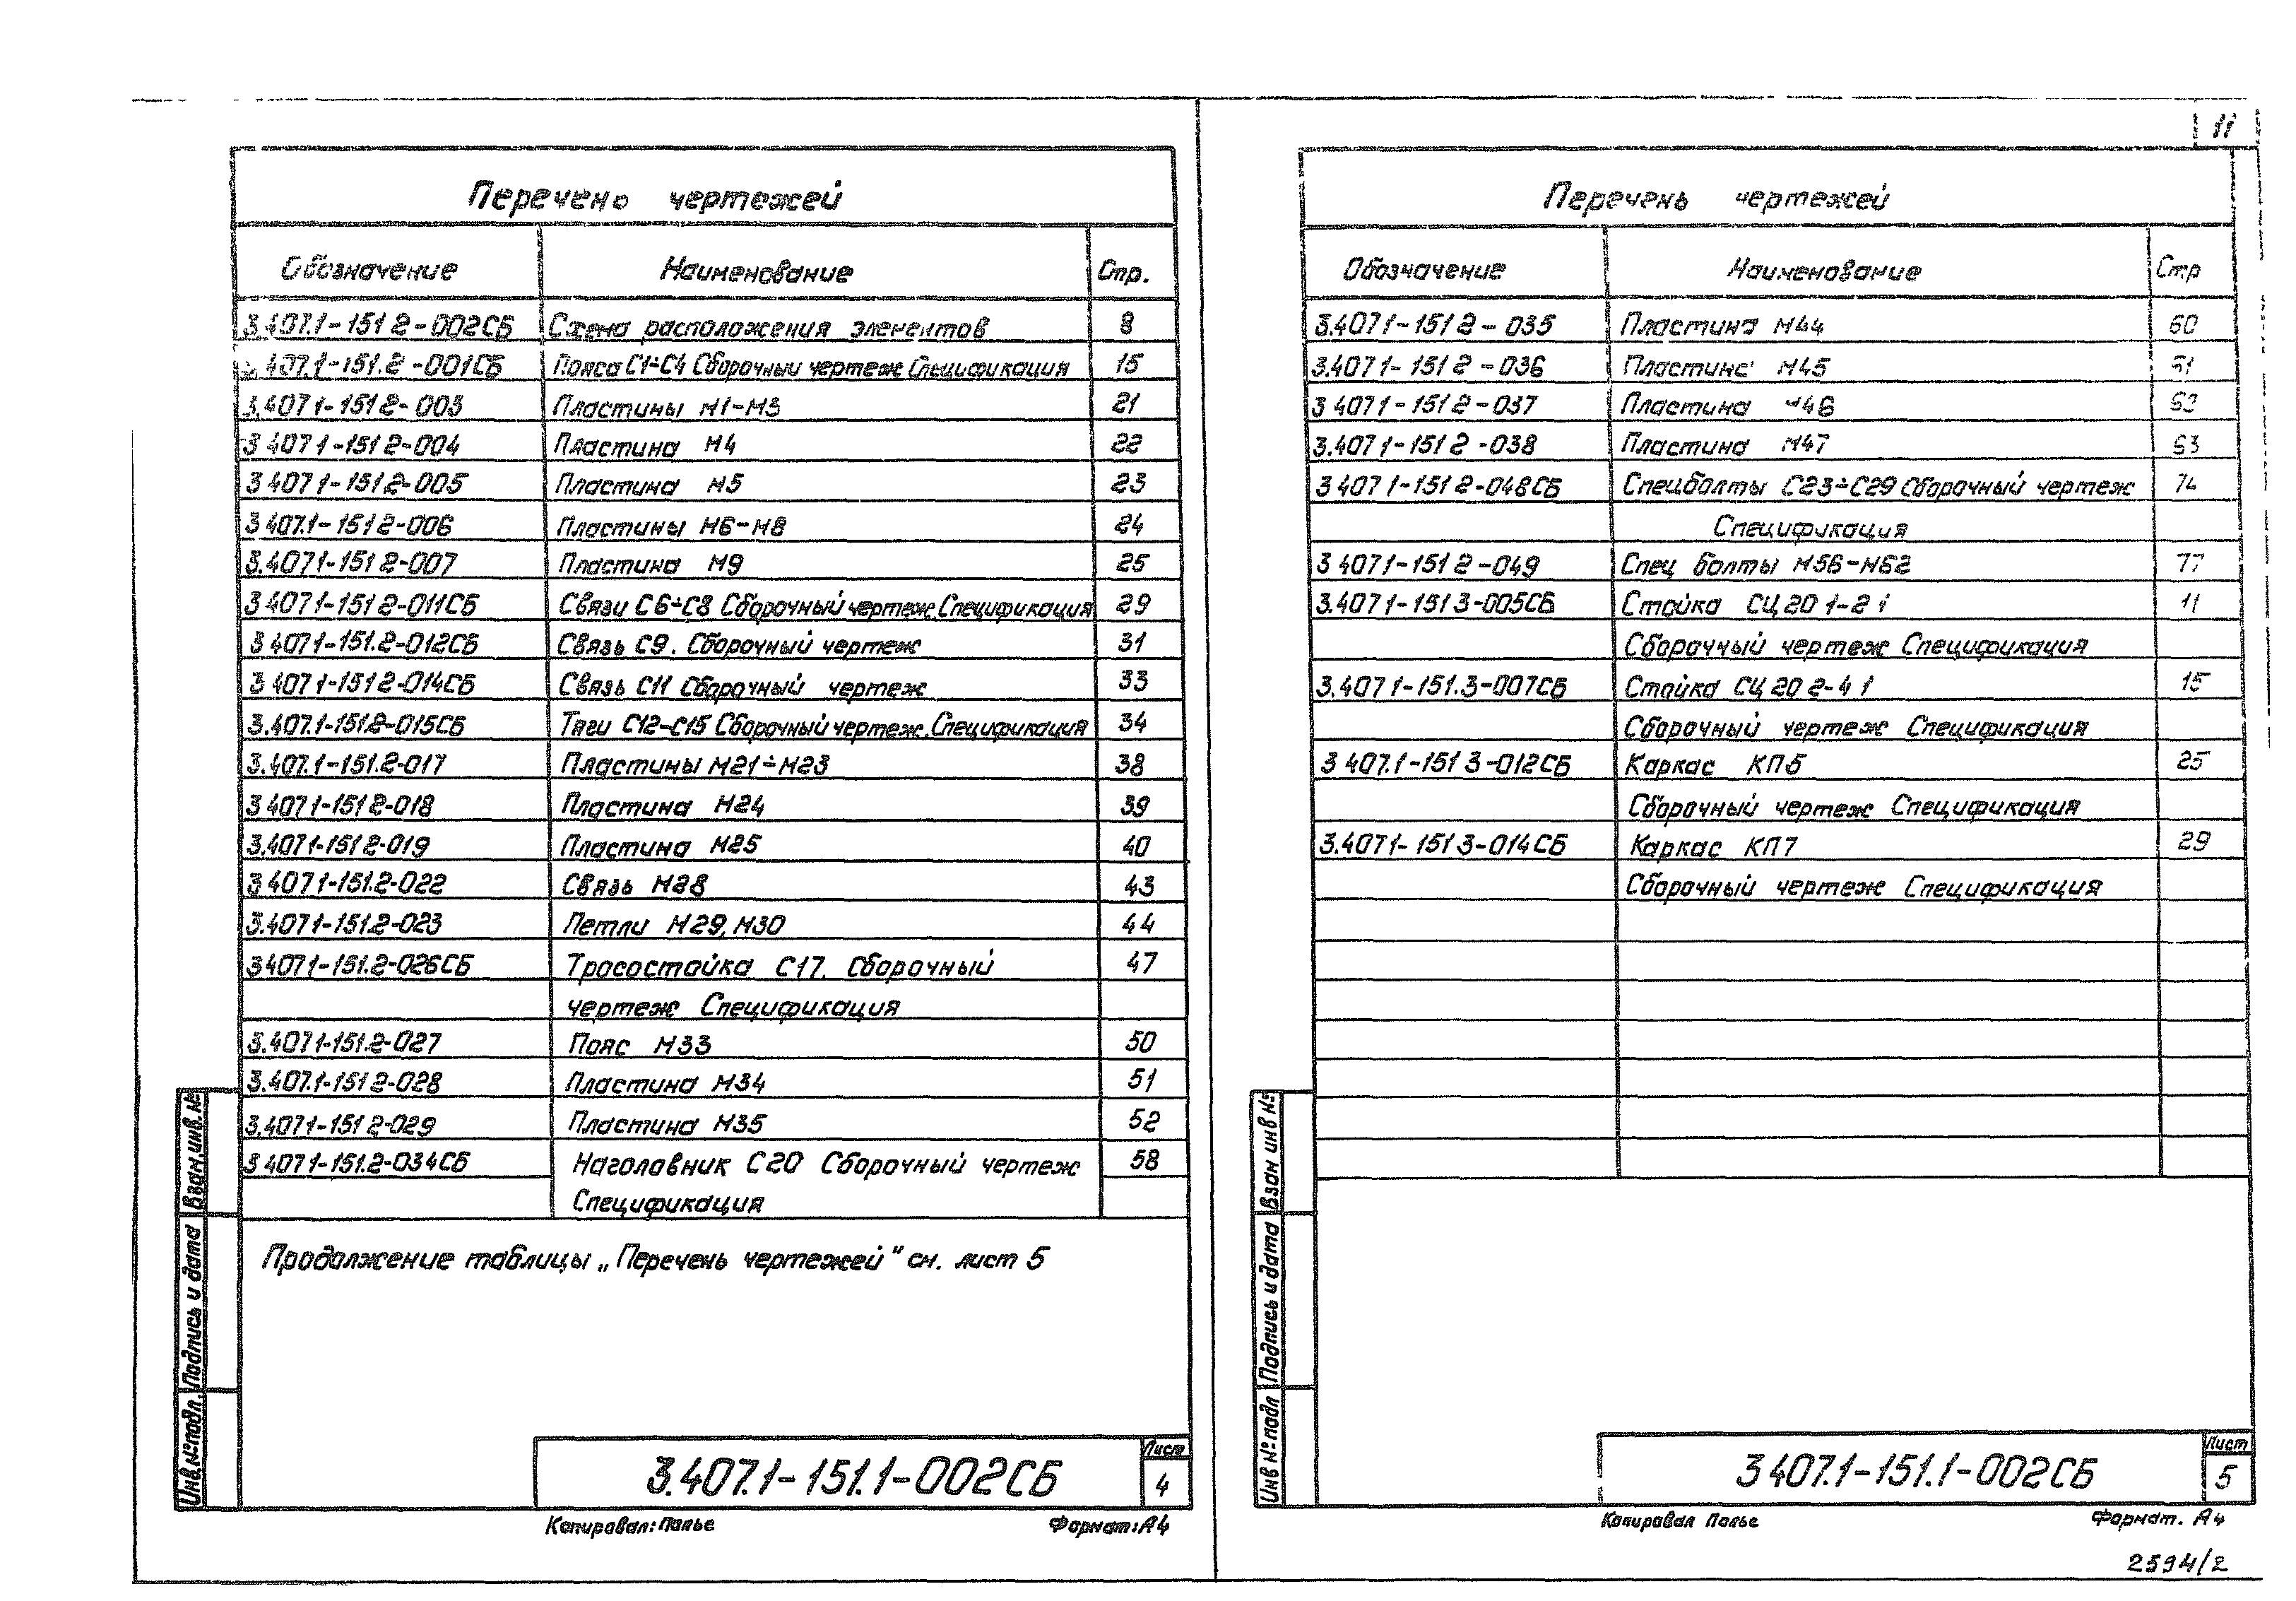 11
Перечень чертежей
Обозначение Наименование Стр.
3.407.1-151 2-002СБ Схема расположения элементов 8
3.407.1-151.2-001СБ Пояса С1÷С4 Сборочный чертеж Спецификация 15
3.407 1-151 2-003 Пластины М1-М3 21
3 407 1-151 2-004 Пластина М4 22
3 407 1-151 2-005 Пластина М5 23
3 407.1-151 2-006 Пластины М6-М8 24
3.407 1-151 2-007 Пластина М9 25
3 407 1-151 2-011СБ Связи С6÷С8 Сборочный чертеж. Спецификация 29
3 407 1-151.2-012СБ Связь С9. Сборочный чертеж 31
3 407 1-151 2-014СБ Связь С11 Сборочный чертеж 33
3.407.1-151.2-015СБ Тяги С12-С15 Сборочный чертеж. Спецификация 34
3.407.1-151.2-017 Пластины М21÷М23 38
3 407 1-151 2-018 Пластина М24 39
3.407 1-151 2-019 Пластина М25 40
3 407 1-151.2-022 Связь М28 43
3.407 1-151.2-023 Петли М29, М30 44
3 407 1-151.2-026СБ Тросостойка С17. Сборочный 47
чертеж Спецификация
3.407 1-151.2-027 Пояс М33 50
3.407.1-151 2-028 Пластина М34 51
3.407 1-151 2-029 Пластина М35 52
3 407 1-151.2-034СБ Наголовник С20 Сборочный чертеж 58
Спецификация
Продолжение таблицы „Перечень чертежей" см. лист 5
Взам.инв.№
Подпись и дата
Инв.№подл.
3.407.1-151.1-002СБ
Лист
4
Копировал: Полье Формат: А4
Перечень чертежей
Обозначение Наименование Стр
3.407 1-151 2-035 Пластина М44 60
3.407 1-151 2-036 Пластина М45 61
3 407 1-151 2-037 Пластина М46 62
3.407 1-151 2-038 Пластина М47 63
3 407 1-151 2-048СБ Спецболты С23÷С29 Сборочный чертеж 74
Спецификация
3 407 1-151 2-049 Спец болты М56-М62 77
3.407 1-151 3-005СБ Стойка СЦ 20 1-2 1 11
Сборочный чертеж Спецификация
3.407 1-151.3-007СБ Стойка СЦ 20 2-4 1 15
Сборочный чертеж Спецификация
3 407.1-151 3-012СБ Каркас КП5 25
Сборочный чертеж Спецификация
3.407 1-151 3-014СБ Каркас КП7 29
Сборочный чертеж Спецификация
Взам инв №
Подпись и дата
Инв №подл
3 407.1-151.1-002СБ
Лист
5
Копировал Полье Формат. А4
2594/2